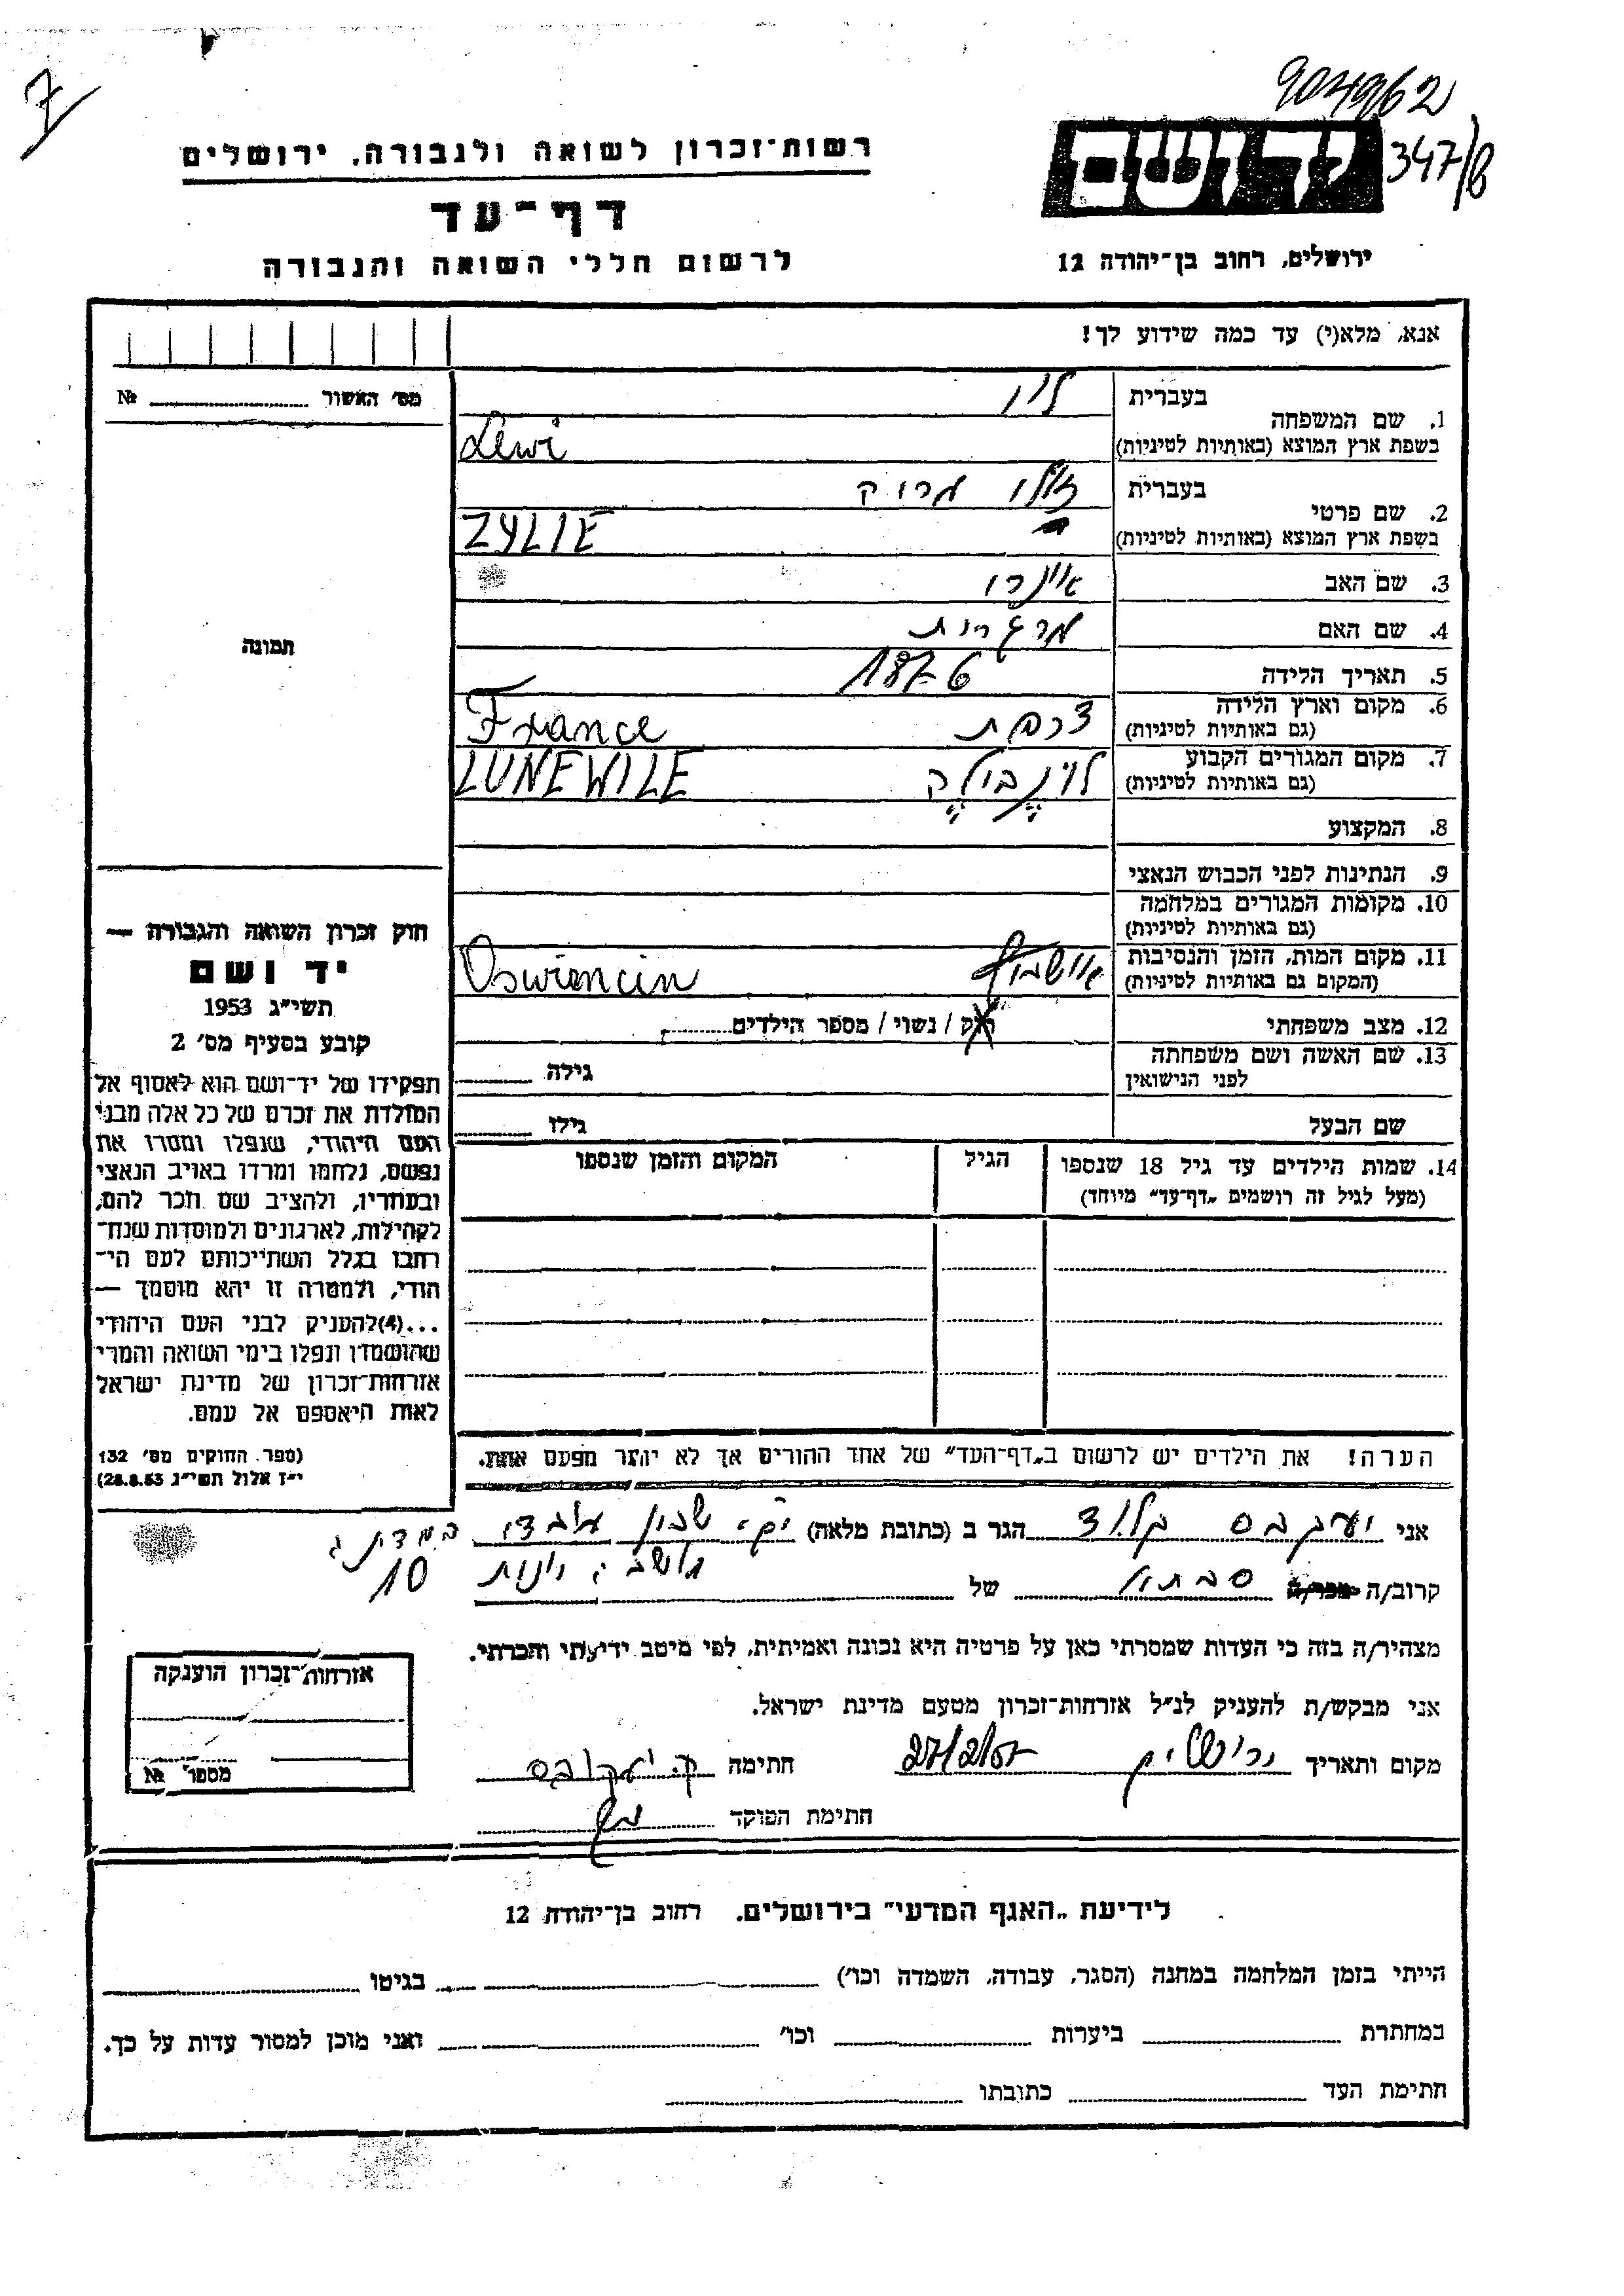 904962
347/8
ז
יד ושם
רשות־זכרון לשואה ולגבורה, ירושלים
דף־עד
לרשום חללי השואה והגבורה
ירושלים, רחוב בן־יהודה 12
אנא, מלא(י) עד כמה שידוע לך!
מס' האשור № 
1. שם המשפחה
בעברית לוי
בשפת ארץ המוצא (באותיות לטיניות) Lewi
2. שם פרטי
בעברית
בשפת ארץ המוצא (באותיות לטיניות) ZYLIE
3. שם האב
4. שם האם מרגרית
5. תאריך הלידה 1876
6. מקום וארץ הלידה
(גם באותיות לטיניות) צרפת France
7. מקום המגורים הקבוע
(גם באותיות לטיניות) LUNEWILE
8. המקצוע
9. הנתינות לפני הכבוש הנאצי
10. מקומות המגורים במלחמה
(גם באותיות לטיניות)
11. מקום המות, הזמן והנסיבות
(המקום גם באותיות לטיניות) Oswiencin
12. מצב משפחתי רוק / נשוי / מספר הילדים
13. שם האשה ושם משפחתה
לפני הנישואין גילה
שם הבעל גילו
14. שמות הילדים עד גיל 18 שנספו הגיל המקום והזמן שנספו
(מעל לגיל זה רושמים „דף־עד" מיוחד)
הערה! את הילדים יש לרשום ב„דף־העד" של אחד ההורים אך לא יותר מפעם אחת.
תמונה
חוק זכרון השואה והגבורה —
יד ושם
תשי"ג 1953
קובע בסעיף מס' 2
תפקידו של יד־ושם הוא לאסוף אל
המולדת את זכרם של כל אלה מבני
העם היהודי, שנפלו ומסרו את
נפשם, נלחמו ומרדו באויב הנאצי
ובעוזריו, ולהציב שם וזכר להם,
לקהילות, לארגונים ולמוסדות שנח־
רבו בגלל השתייכותם לעם הי־
הודי, ולמטרה זו יהא מוסמך —
...(4)להעניק לבני העם היהודי
שהושמדו ונפלו בימי השואה והמרי
אזרחות־זכרון של מדינת ישראל
לאות היאספם אל עמם.
(ספר החוקים מס' 132
י"ז אלול תשי"ג 28.8.53)
אני הגר ב (כתובת מלאה)
10
קרוב/ה מכר/ה סבתי של
מצהיר/ה בזה כי העדות שמסרתי כאן על פרטיה היא נכונה ואמיתית, לפי מיטב ידיעתי והכרתי.
אני מבקש/ת להעניק לנ"ל אזרחות־זכרון מטעם מדינת ישראל.
מקום ותאריך ירושלים חתימה
חתימת הפוקד
אזרחות־זכרון הוענקה
מספר №
לידיעת „האגף המדעי" בירושלים, רחוב בן־יהודה 12
הייתי בזמן המלחמה במחנה (הסגר, עבודה, השמדה וכו') בגיטו
במחתרת ביערות וכו' ואני מוכן למסור עדות על כך.
חתימת העד כתובתו